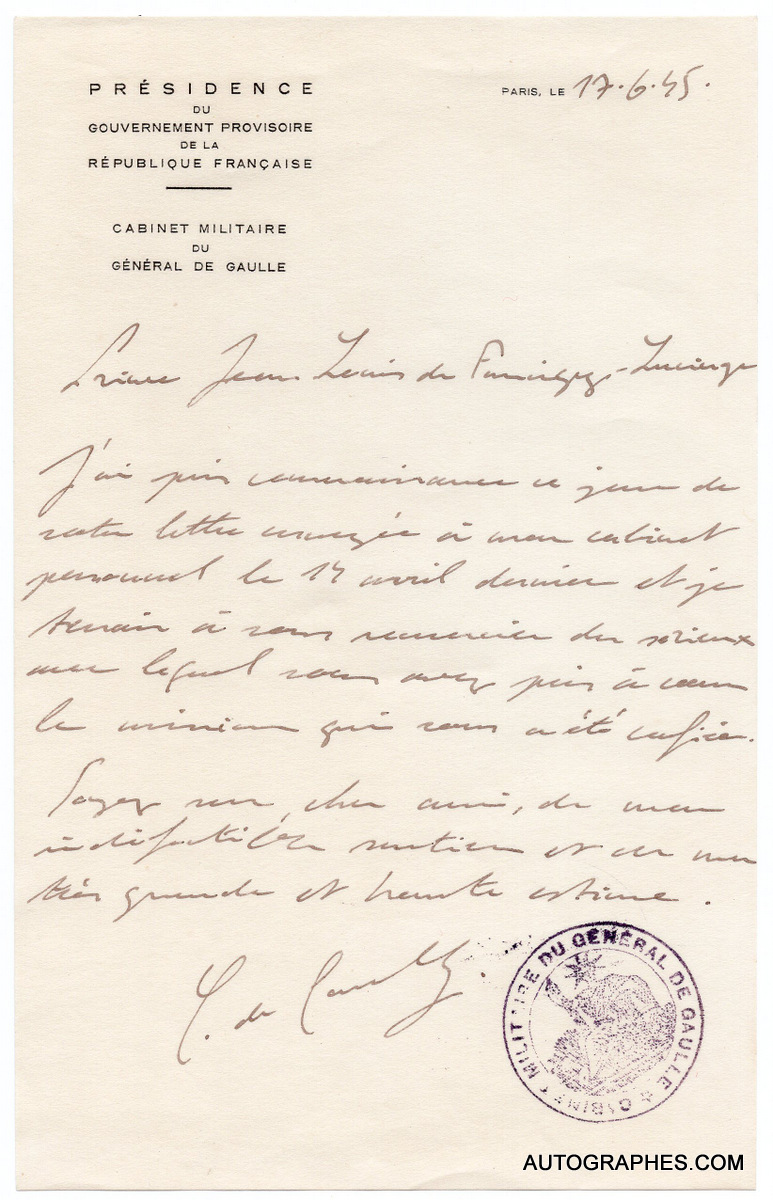 PRÉSIDENCE
DU
GOUVERNEMENT PROVISOIRE
DE LA
RÉPUBLIQUE FRANÇAISE
CABINET MILITAIRE
DU
GÉNÉRAL DE GAULLE
PARIS, LE 17.6.45.
Prince Jean Louis de Faucigny-Lucinge
J'ai pris connaissance ce jour de
votre lettre envoyée à mon cabinet
personnel le 14 avril dernier et je
tenais à vous remercier du sérieux
avec lequel vous avez pris à coeur
la mission qui vous a été confiée.
Soyez sur, cher ami, de mon
indéfectible soutien et de ma
très grande et haute estime.
C. de Gaulle
CABINET MILITAIRE DU GÉNÉRAL DE GAULLE
AUTOGRAPHES.COM